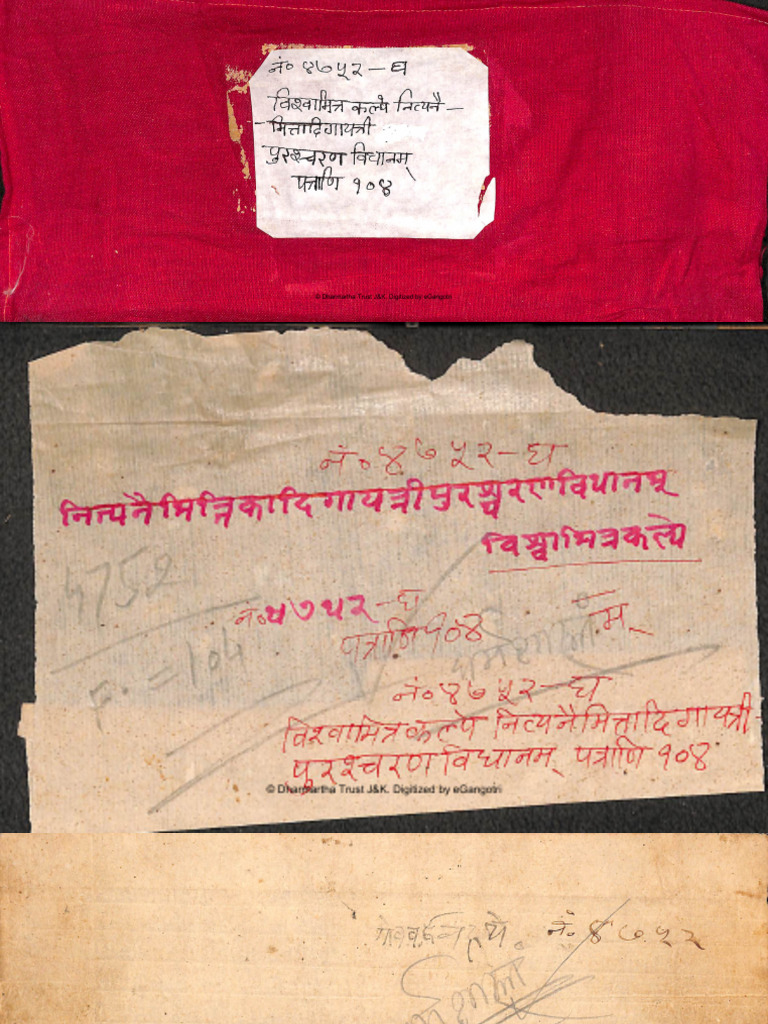 नं० ४७५२ – घ
विश्वामित्र कल्पे नित्यनै –
– मित्तादिगायत्री
पुरश्चरण विधानम्
पत्राणि १०४
© Dharmartha Trust J&K. Digitized by eGangotri
नं० ४७५२ – घ
नित्यनैमित्तिकादिगायत्रीपुरश्चरणविधानम्
विश्वामित्रकल्पे
4752
नं० ४७५२ – घ
पत्राणि १०४
F. = 104
नं० ४७५२ – घ
विश्वामित्रकल्पे नित्यनैमित्तादिगायत्री –
पुरश्चरणविधानम् पत्राणि १०४
© Dharmartha Trust J&K. Digitized by eGangotri
नं० ४७५२